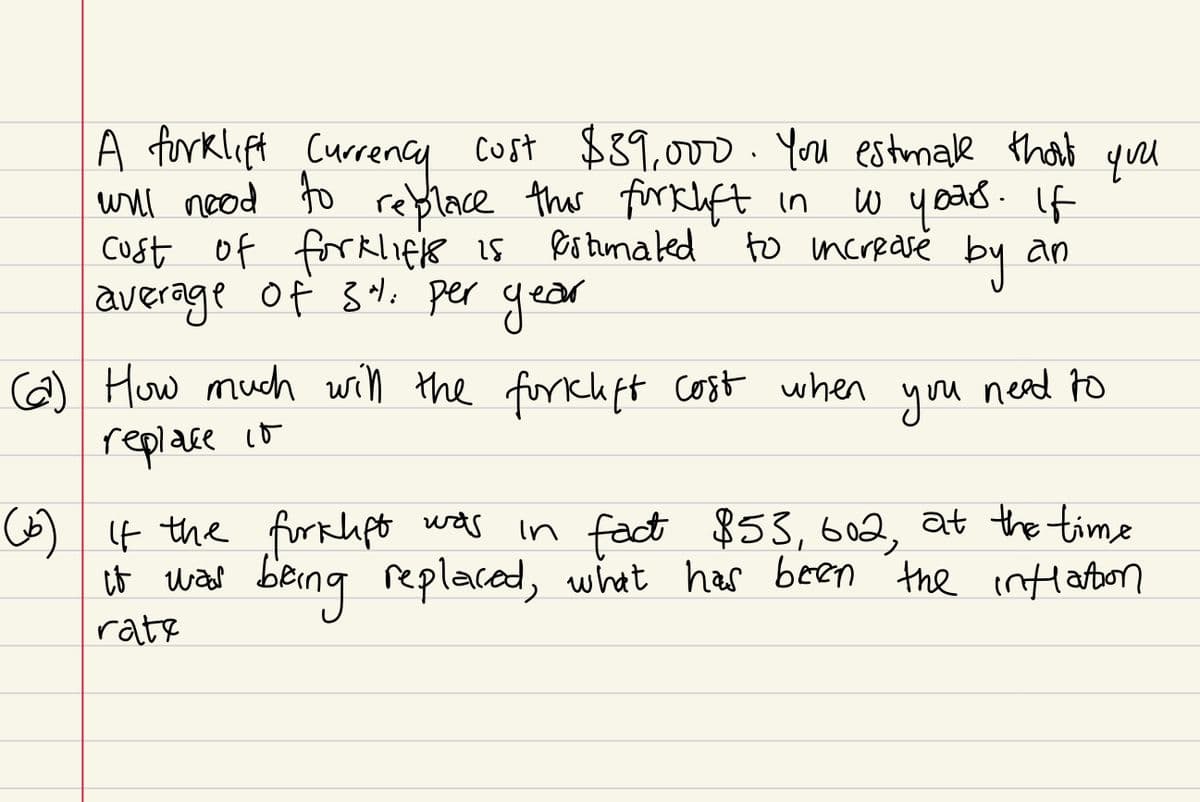 A forklift Currency cost $39,000. You estimate that you
will need to replace this forklift in 10 years. If
cost of forklifts is estimated to increase by an
average of 3%. per year
(a) How much will the forklift cost when you need to
replace it
(b) If the forklift was in fact $53,602, at the time
it was being replaced, what has been the inflation
rate